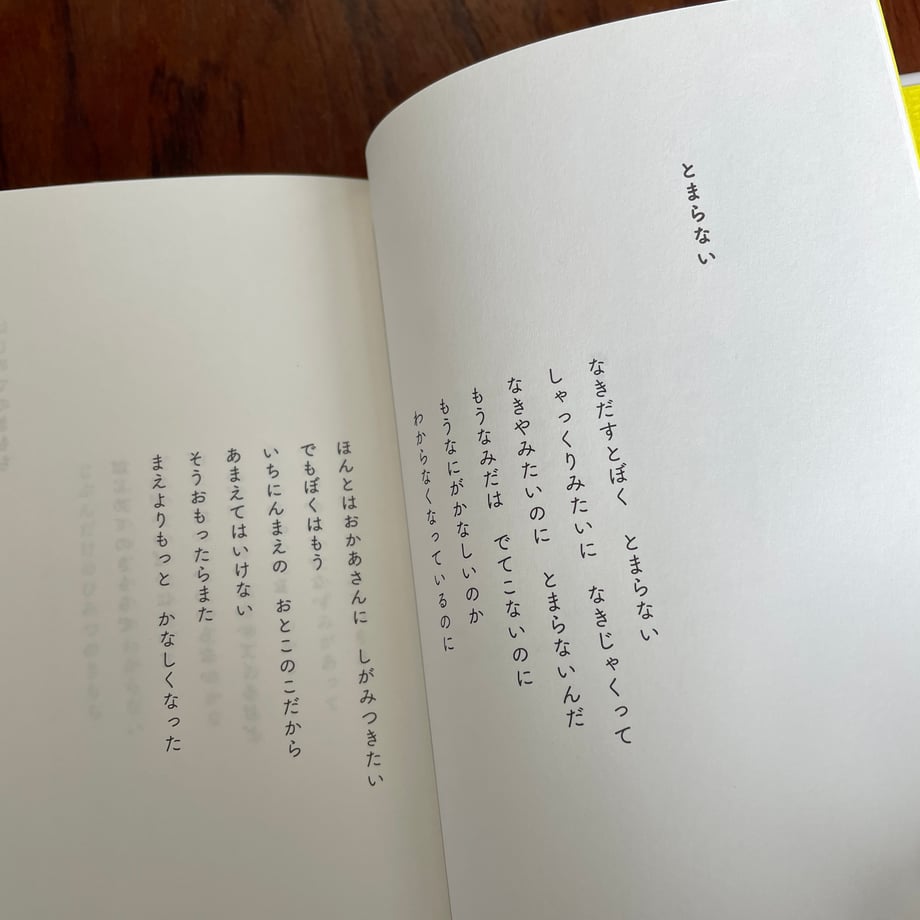 とまらない
なきだすとぼく　とまらない
しゃっくりみたいに　なきじゃくって
なきやみたいのに　とまらないんだ
もうなみだは　でてこないのに
もうなにがかなしいのか
わからなくなっているのに
ほんとはおかあさんに　しがみつきたい
でもぼくはもう
いちにんまえの　おとこのこだから
あまえてはいけない
そうおもったらまた
まえよりもっと　かなしくなった